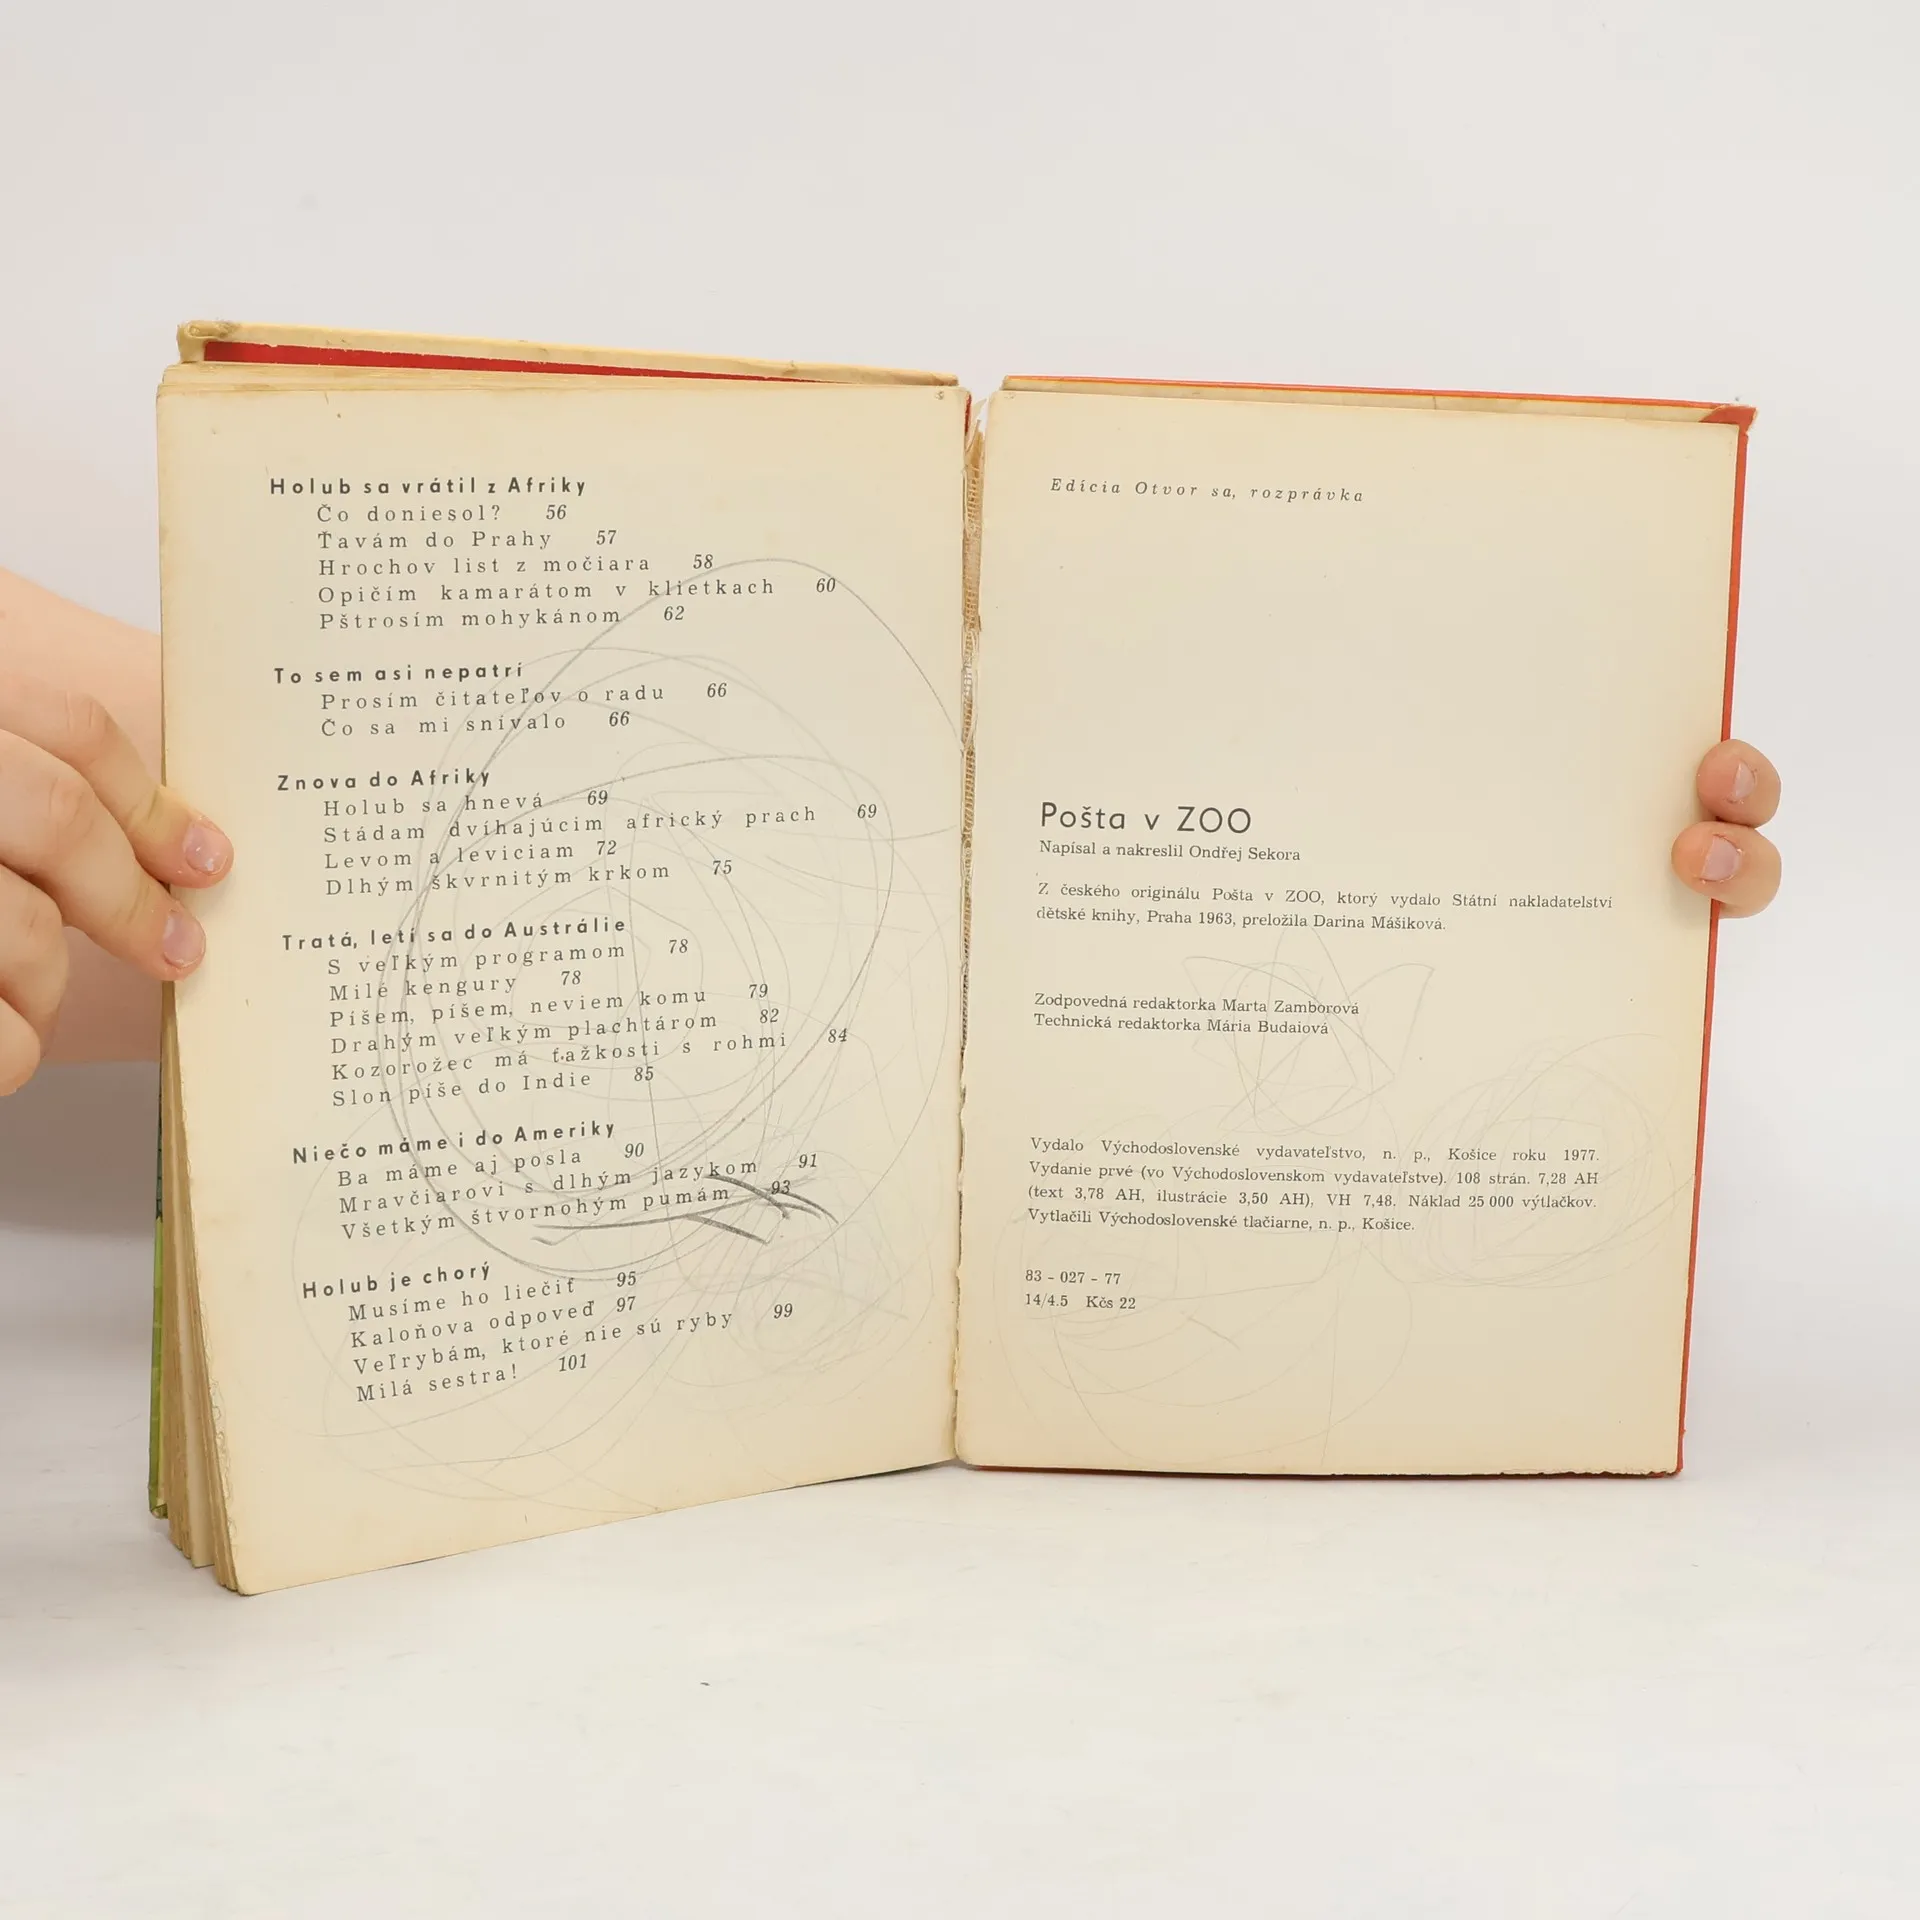 Holub sa vrátil z Afriky
Čo doniesol? 56
Ťavám do Prahy 57
Hrochov list z močiara 58
Opičím kamarátom v klietkach 60
Pštrosím mohykánom 62
To sem asi nepatrí
Prosím čitateľov o radu 66
Čo sa mi snívalo 66
Znova do Afriky
Holub sa hnevá 69
Stádam dvíhajúcim africký prach 69
Levom a leviciam 72
Dlhým škvrnitým krkom 75
Tratá, letí sa do Austrálie
S veľkým programom 78
Milé kengury 78
Píšem, píšem, neviem komu 79
Drahým veľkým plachtárom 82
Kozorožec má ťažkosti s rohmi 84
Slon píše do Indie 85
Niečo máme i do Ameriky
Ba máme aj posla 90
Mravčiarovi s dlhým jazykom 91
Všetkým štvornohým pumám 93
Holub je chorý
Musíme ho liečiť 95
Kaloňova odpoveď 97
Veľrybám, ktoré nie sú ryby 99
Milá sestra! 101
Edícia Otvor sa, rozprávka
Pošta v ZOO
Napísal a nakreslil Ondřej Sekora
Z českého originálu Pošta v ZOO, ktorý vydalo Státní nakladatelství
dětské knihy, Praha 1963, preložila Darina Mášiková.
Zodpovedná redaktorka Marta Zamborová
Technická redaktorka Mária Budaiová
Vydalo Východoslovenské vydavateľstvo, n. p., Košice roku 1977.
Vydanie prvé (vo Východoslovenskom vydavateľstve). 108 strán. 7,28 AH
(text 3,78 AH, ilustrácie 3,50 AH), VH 7,48. Náklad 25 000 výtlačkov.
Vytlačili Východoslovenské tlačiarne, n. p., Košice.
83 - 027 - 77
14/4.5 Kčs 22